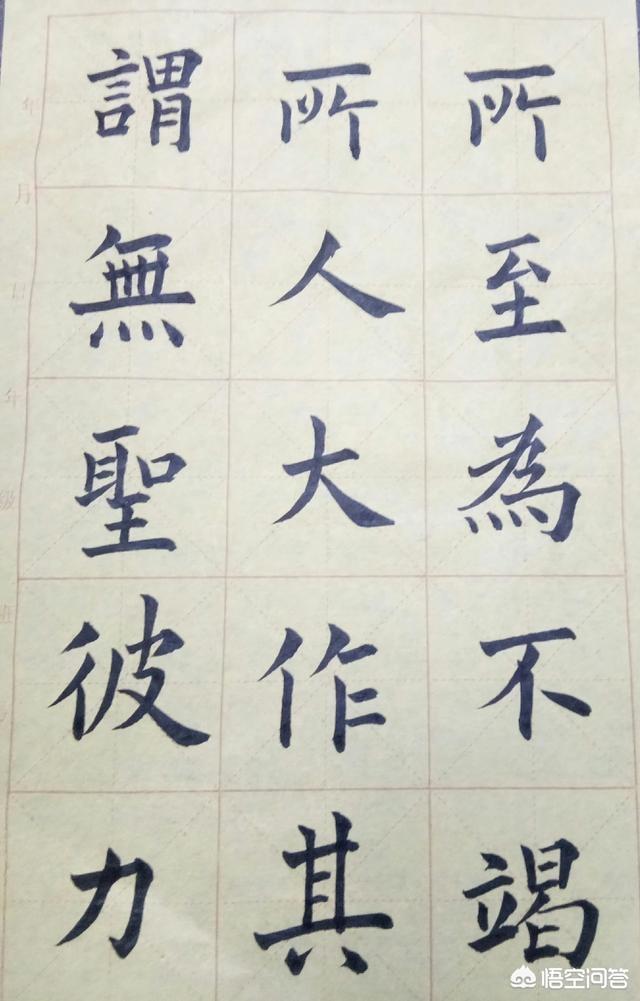 所至為不竭
所人大作其
謂無聖彼力
年月日 年級 班
悟空问答